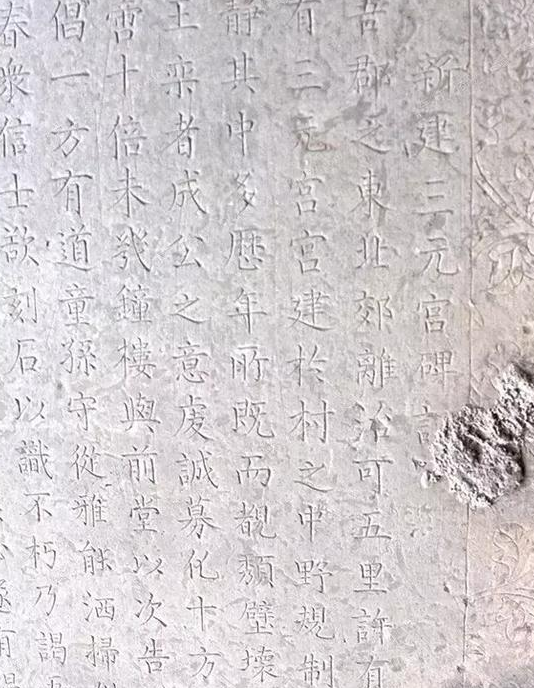 新建三元宮碑記
吾郡之東北郊離治可五里許有
有三元宮宮建於村之中野規制
靜其中多歷年所既而覩頹壁壞
工來者成公之意虔誠募化十方
啻十倍未幾鐘樓與前堂以次告
倡一方有道童孫守從雅能洒掃
春衆信士欲刻石以識不朽乃謁